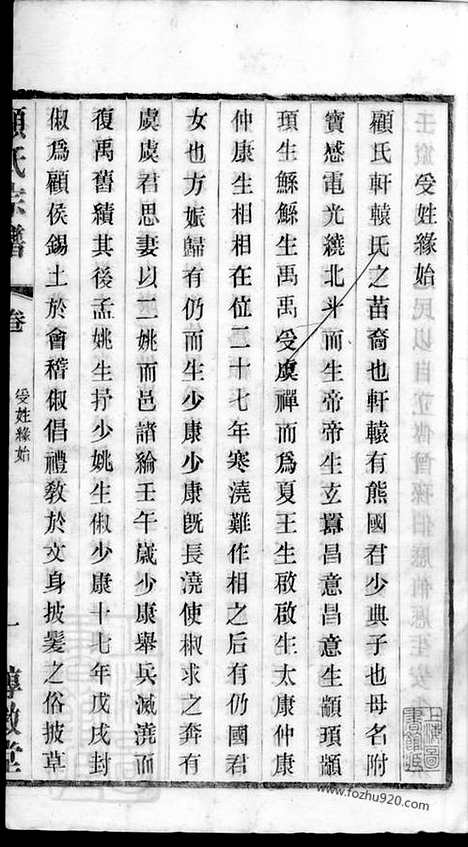 受姓緣始
顧氏軒轅氏之苗裔也軒轅有熊國君少典子也母名附
寶感電光繞北斗而生帝帝生玄囂昌意昌意生顓頊顓
頊生鯀鯀生禹禹受虞禪而爲夏王生啟啟生太康仲康
仲康生相相在位二十七年寒澆難作相之后有仍國君
女也方娠歸有仍而生少康少康既長澆使椒求之奔有
虞虞君思妻以二姚而邑諸綸壬午歲少康舉兵滅澆而
復禹舊績其後孟姚生抒少姚生俶少康十七年戊戌封
俶爲顧侯錫土於會稽俶倡禮敎於文身披髮之俗披草
顧氏宗譜
卷
受姓緣始
一
敘堂
上海圖
書館藏
www.fozhu920.com